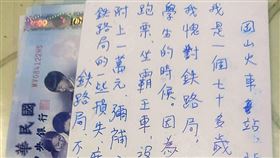 岡山火車站
我是一個七十多歲
我愧對鐵路局，
學生的時候，因為
跑票坐霸王車，沒
附上一萬元，彌補
鐵路局的一些損失
鐵路局，不
華民國
央銀行